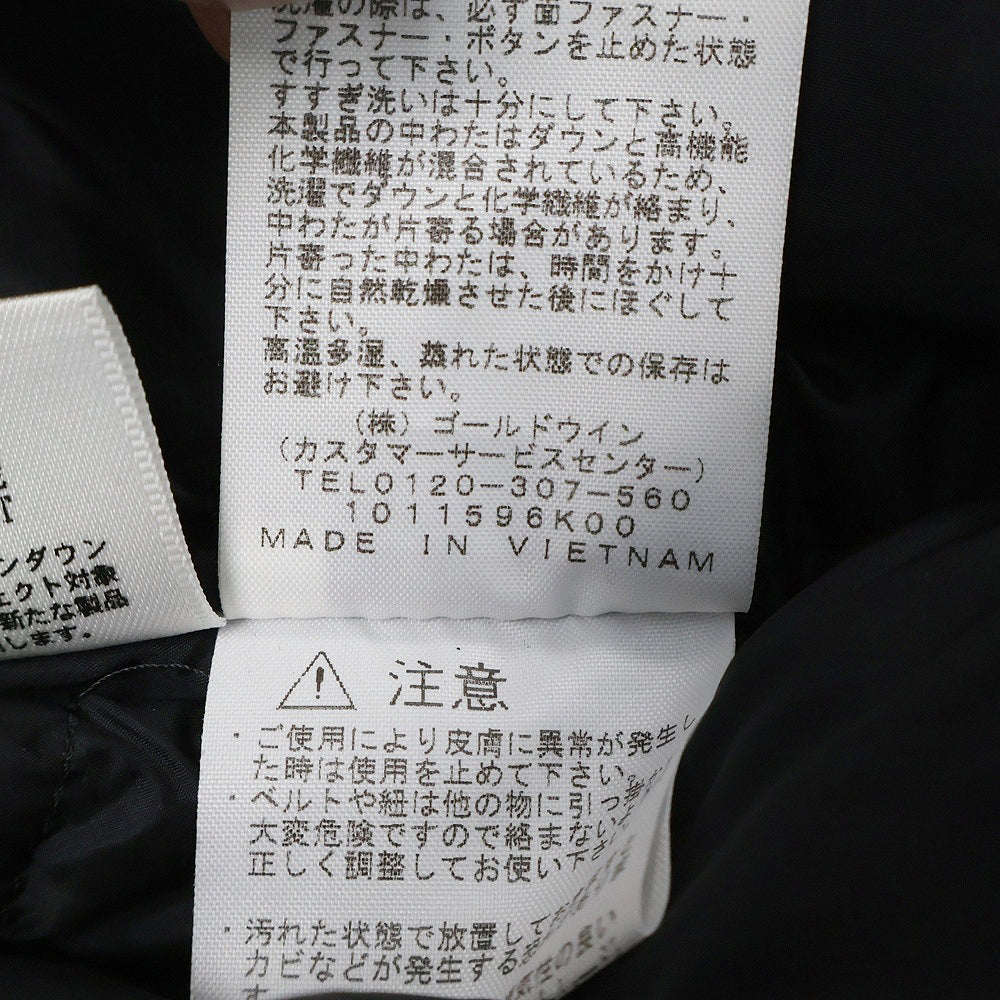 洗濯の際は、必ず面ファスナー・
ファスナー・ボタンを止めた状態
で行って下さい。
すすぎ洗いは十分にして下さい。
本製品の中わたはダウンと高機能
化学繊維が混合されているため、
洗濯でダウンと化学繊維が絡まり、
中わたが片寄る場合があります。
片寄った中わたは、時間をかけ十
分に自然乾燥させた後にほぐして
下さい。
高温多湿、蒸れた状態での保存は
お避け下さい。
(株)ゴールドウイン
(カスタマーサービスセンター)
TEL0120-307-560
1011596K00
MADE IN VIETNAM
ンダウン
ェクト対象
新たな製品
します。
注意
・ご使用により皮膚に異常が発生し
た時は使用を止めて下さい。
・ベルトや紐は他の物に引っ
大変危険ですので絡まないよ
正しく調整してお使い下さい
・汚れた状態で放置して
カビなどが発生する
す